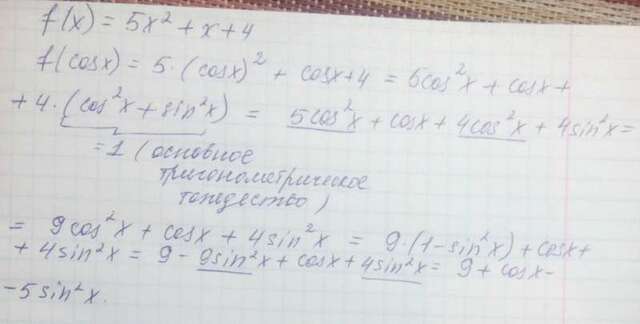 f(x) = 5x² + x + 4
f(cosx) = 5·(cosx)² + cosx+4 = 5cos²x + cosx +
+ 4·(cos²x + sin²x) = 5cos²x + cosx + 4cos²x + 4sin²x =
=1 (основное
тригонометрическое
тождество)
= 9cos²x + cosx + 4sin²x = 9·(1-sin²x) + cosx+
+ 4sin²x = 9 - 9sin²x + cosx + 4sin²x = 9 + cosx -
-5sin²x.